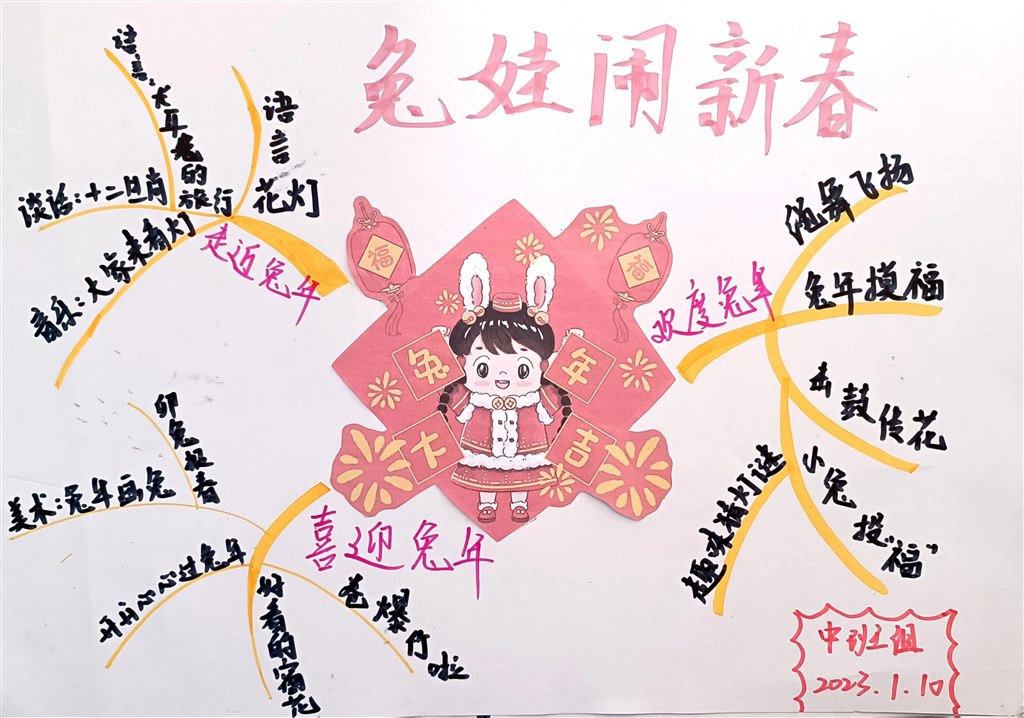 兔娃闹新春
语言:大耳兔的旅行
语言
花灯
谈话:十二生肖
音乐:大家来看灯
走近兔年
福
福
兔年
大吉
欢度兔年
绳舞飞扬
兔年摸福
击鼓传花
小兔投“福”
趣味猜灯谜
喜迎兔年
卯兔报春
美术:兔年画兔
开开心心过兔年
好看的窗花
卷爆竹啦
中班组
2023.1.10